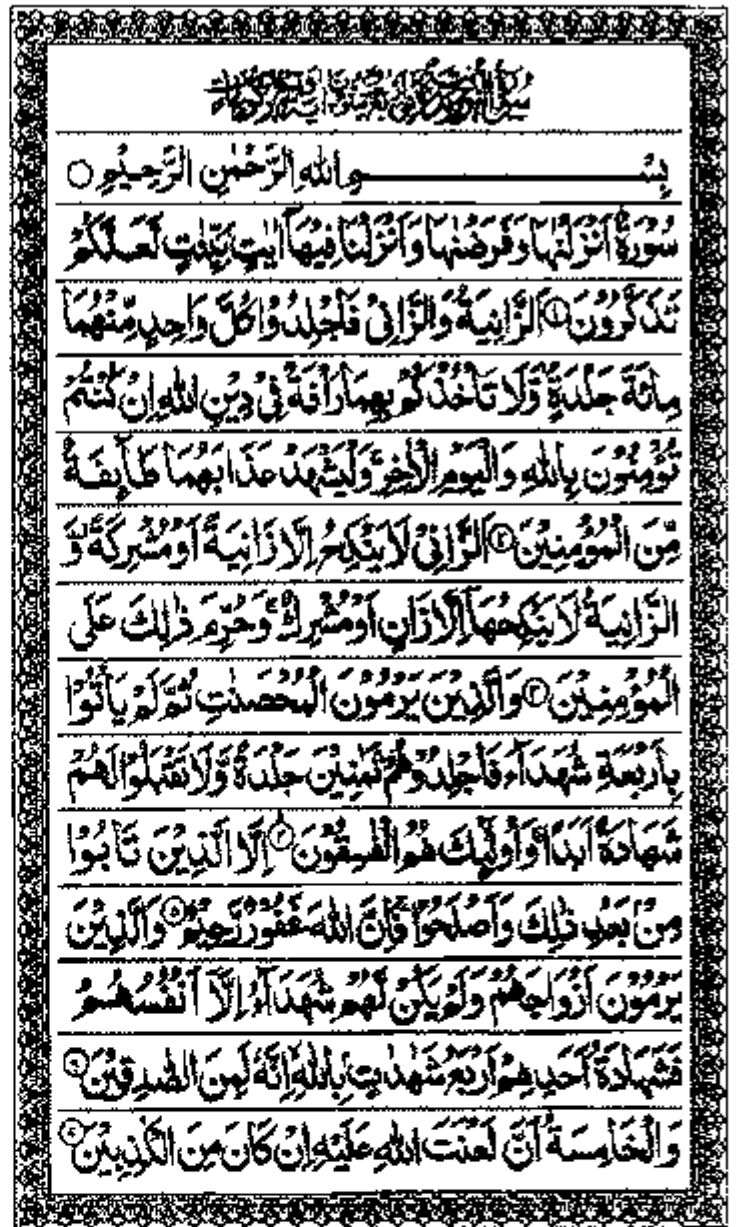 بِسْمِ اللهِ الرَّحْمٰنِ الرَّحِيْمِ ○
سُوْرَةٌ اَنْزَلْنٰهَا وَفَرَضْنٰهَا وَاَنْزَلْنَا فِيْهَآ اٰيٰتٍۭ بَيِّنٰتٍ لَّعَلَّكُمْ
تَذَكَّرُوْنَ ۝۱ اَلزَّانِيَةُ وَالزَّانِيْ فَاجْلِدُوْا كُلَّ وَاحِدٍ مِّنْهُمَا
مِائَةَ جَلْدَةٍ ۪ وَّلَا تَاْخُذْكُمْ بِهِمَا رَاْفَةٌ فِيْ دِيْنِ اللهِ اِنْ كُنْتُمْ
تُؤْمِنُوْنَ بِاللهِ وَالْيَوْمِ الْاٰخِرِ ۚ وَلْيَشْهَدْ عَذَابَهُمَا طَآئِفَةٌ
مِّنَ الْمُؤْمِنِيْنَ ۝۲ اَلزَّانِيْ لَا يَنْكِحُ اِلَّا زَانِيَةً اَوْ مُشْرِكَةً ۡ وَّ
الزَّانِيَةُ لَا يَنْكِحُهَآ اِلَّا زَانٍ اَوْ مُشْرِكٌ ۚ وَحُرِّمَ ذٰلِكَ عَلَى
الْمُؤْمِنِيْنَ ۝۳ وَالَّذِيْنَ يَرْمُوْنَ الْمُحْصَنٰتِ ثُمَّ لَمْ يَاْتُوْا
بِاَرْبَعَةِ شُهَدَآءَ فَاجْلِدُوْهُمْ ثَمٰنِيْنَ جَلْدَةً وَّلَا تَقْبَلُوْا لَهُمْ
شَهَادَةً اَبَدًا ۚ وَاُولٰٓئِكَ هُمُ الْفٰسِقُوْنَ ۝۴ اِلَّا الَّذِيْنَ تَابُوْا
مِنْۢ بَعْدِ ذٰلِكَ وَاَصْلَحُوْا ۚ فَاِنَّ اللهَ غَفُوْرٌ رَّحِيْمٌ ۝۵ وَالَّذِيْنَ
يَرْمُوْنَ اَزْوَاجَهُمْ وَلَمْ يَكُنْ لَّهُمْ شُهَدَآءُ اِلَّآ اَنْفُسُهُمْ
فَشَهَادَةُ اَحَدِهِمْ اَرْبَعُ شَهٰدٰتٍۭ بِاللهِ اِنَّهٗ لَمِنَ الصّٰدِقِيْنَ ۝۶
وَالْخَامِسَةُ اَنَّ لَعْنَتَ اللهِ عَلَيْهِ اِنْ كَانَ مِنَ الْكٰذِبِيْنَ ۝۷